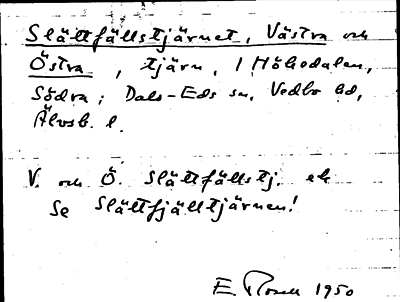 Slättfällstjärnet, Västra och
Östra, tjärn, i Höhedalen,
Södra; Dals-Eds sn, Vedbo hd,
Älvsb. l.
V. och Ö. Slättfällstj. ek
Se Slättfjälltjärnen!
E. Rosell 1950